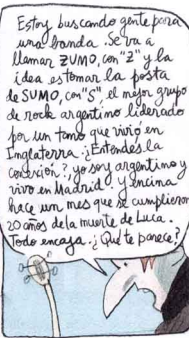 Estoy buscando gente para
una banda. Se va a
llamar ZUMO, con "Z" y la
idea es tomar la posta
de SUMO, con "S", el mejor grupo
de rock argentino liderado
por un tano que vivió en
Inglaterra. ¿Entendés la
conexión?, yo soy argentino y
vivo en Madrid. Y encima
hace un mes que se cumplieron
20 años de la muerte de Luca.
Todo encaja. ¿Qué te parece?